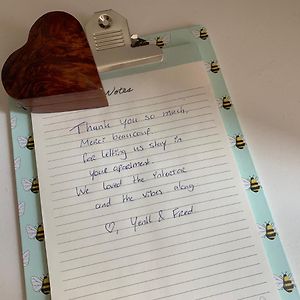 Notes
Thank you so much,
Merci beaucoup
for letting us stay in
your apartment.
We loved the interior
and the vibes along
♡, Yentl & Fred